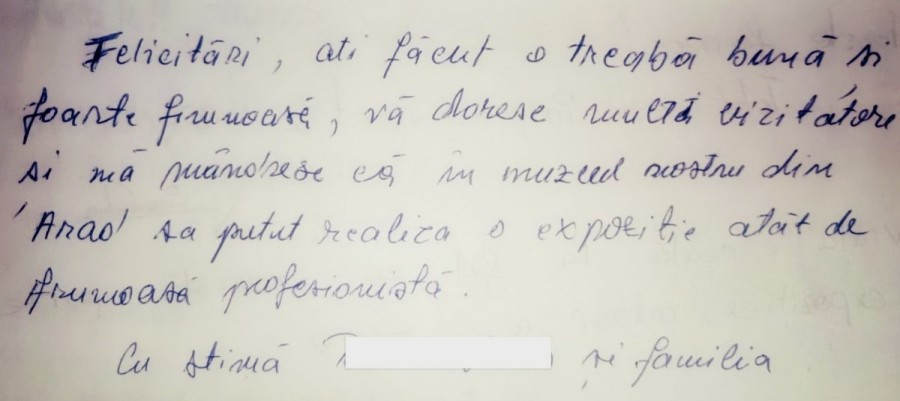 Felicitări, ati făcut o treabă bună si
foarte frumoasă, vă doresc multă vizitatore
si mă mândresc că in muzeul nostru din
Arad sa putut realiza o expoziție atât de
frumoasă profesionistă.
Cu stimă și familia